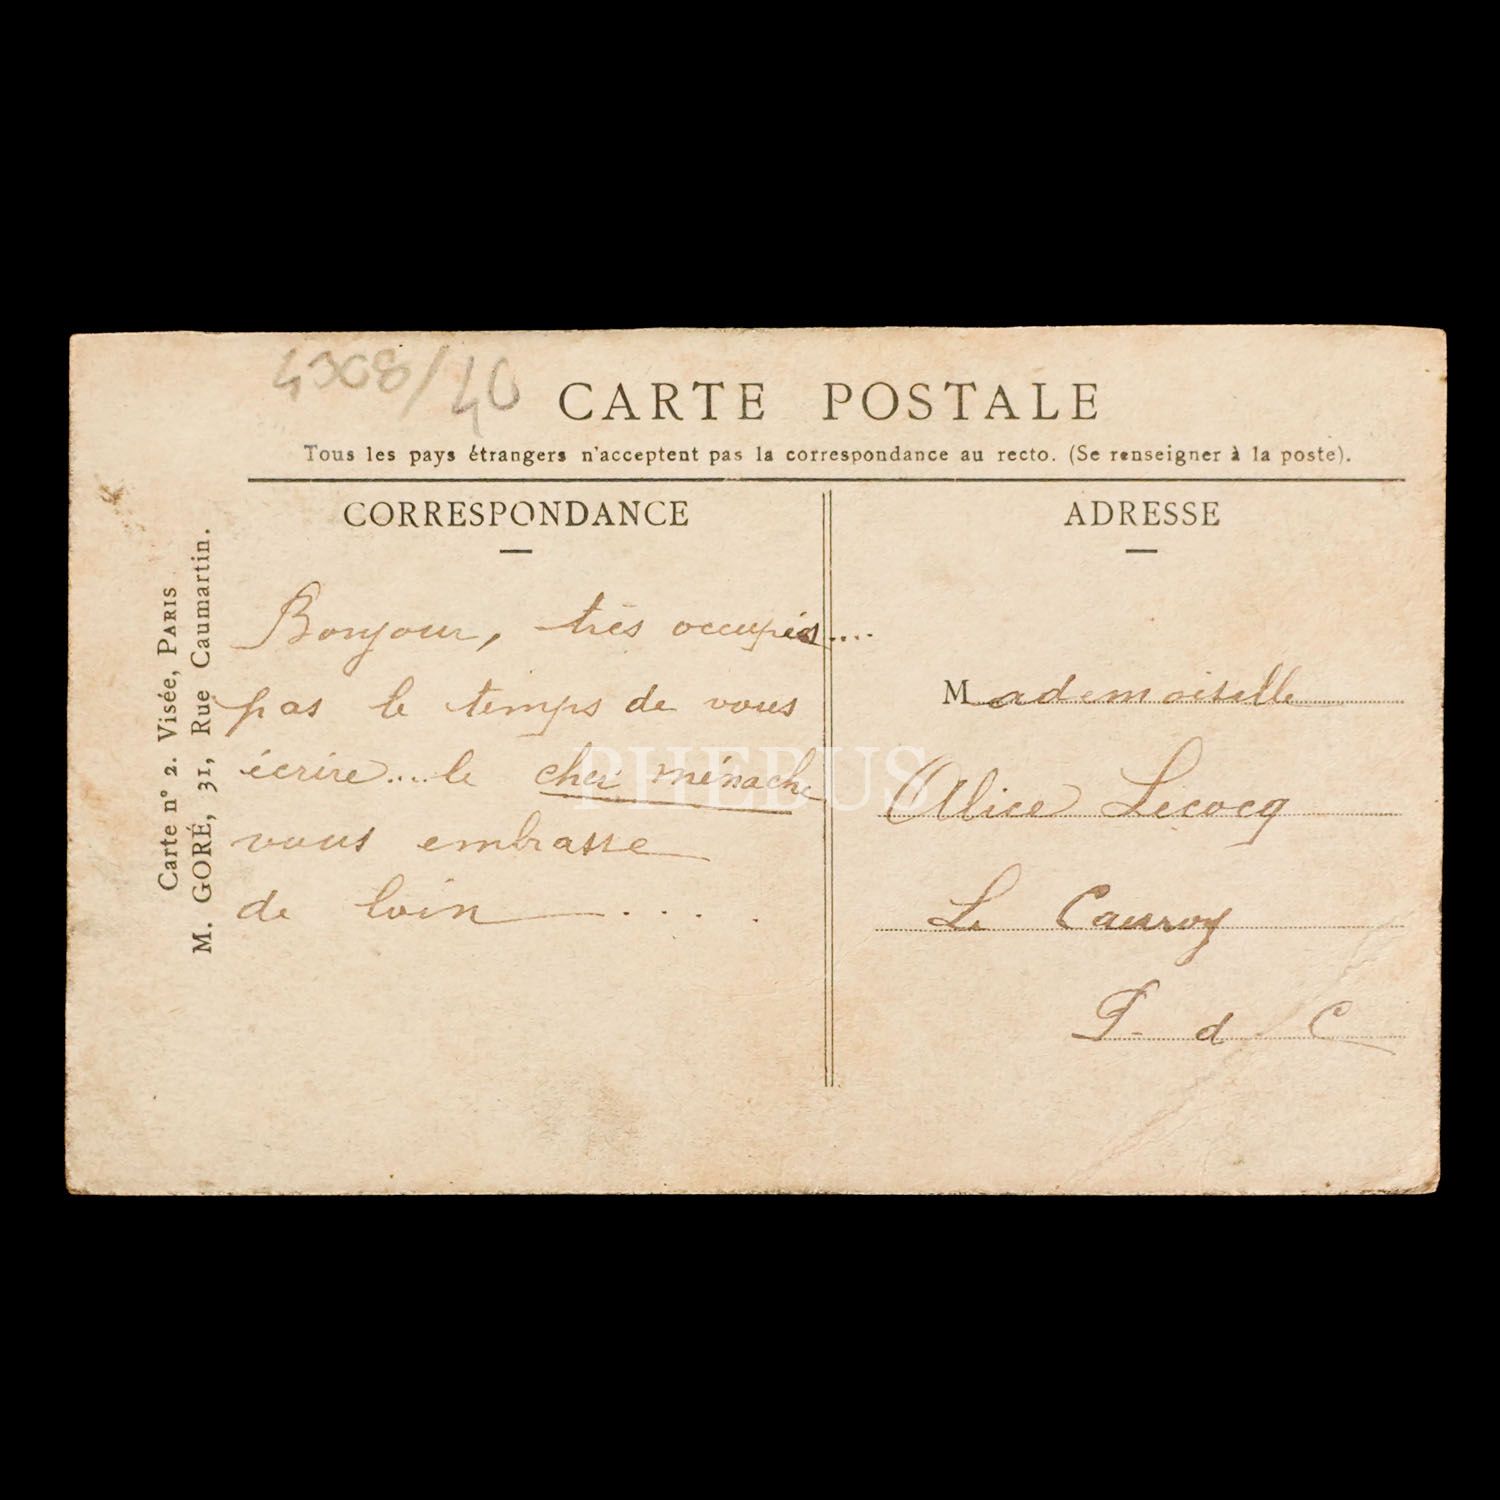 4308/40
CARTE POSTALE
Tous les pays étrangers n'acceptent pas la correspondance au recto. (Se renseigner à la poste).
CORRESPONDANCE
Bonjour, très occupés....
pas le temps de vous
écrire....le cher ménache
vous embrasse
de loin ....
ADRESSE
Mademoiselle
Alice Lecocq
Le Cauroy
P. d C
Carte n° 2. Visée, PARIS
M. GORÉ, 31, Rue Caumartin.
PHEBUS